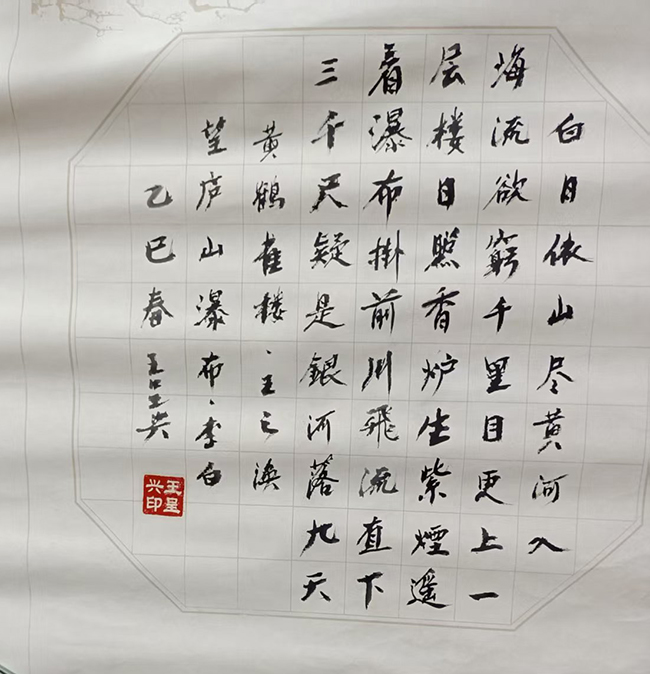 白日依山尽黄河入
海流欲窮千里目更上一
层楼日照香炉生紫煙遥
看瀑布掛前川飛流直下
三千尺疑是銀河落九天
黄鶴雀楼、王之涣
望庐山瀑布、李白
乙巳春 王星兴
王星兴印